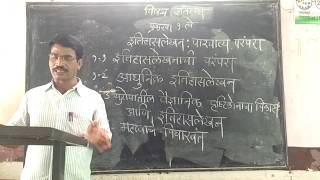 विषय इतिहास
प्रकरण १ ले
इतिहासलेखन : पाश्चात्य परंपरा
१.१ इतिहासलेखनाची परंपरा
१.२ आधुनिक इतिहासलेखन
युरोपातील वैज्ञानिक दृष्टिकोनाचा विकास
आणि इतिहासलेखन
महत्वाचे विचारवंत